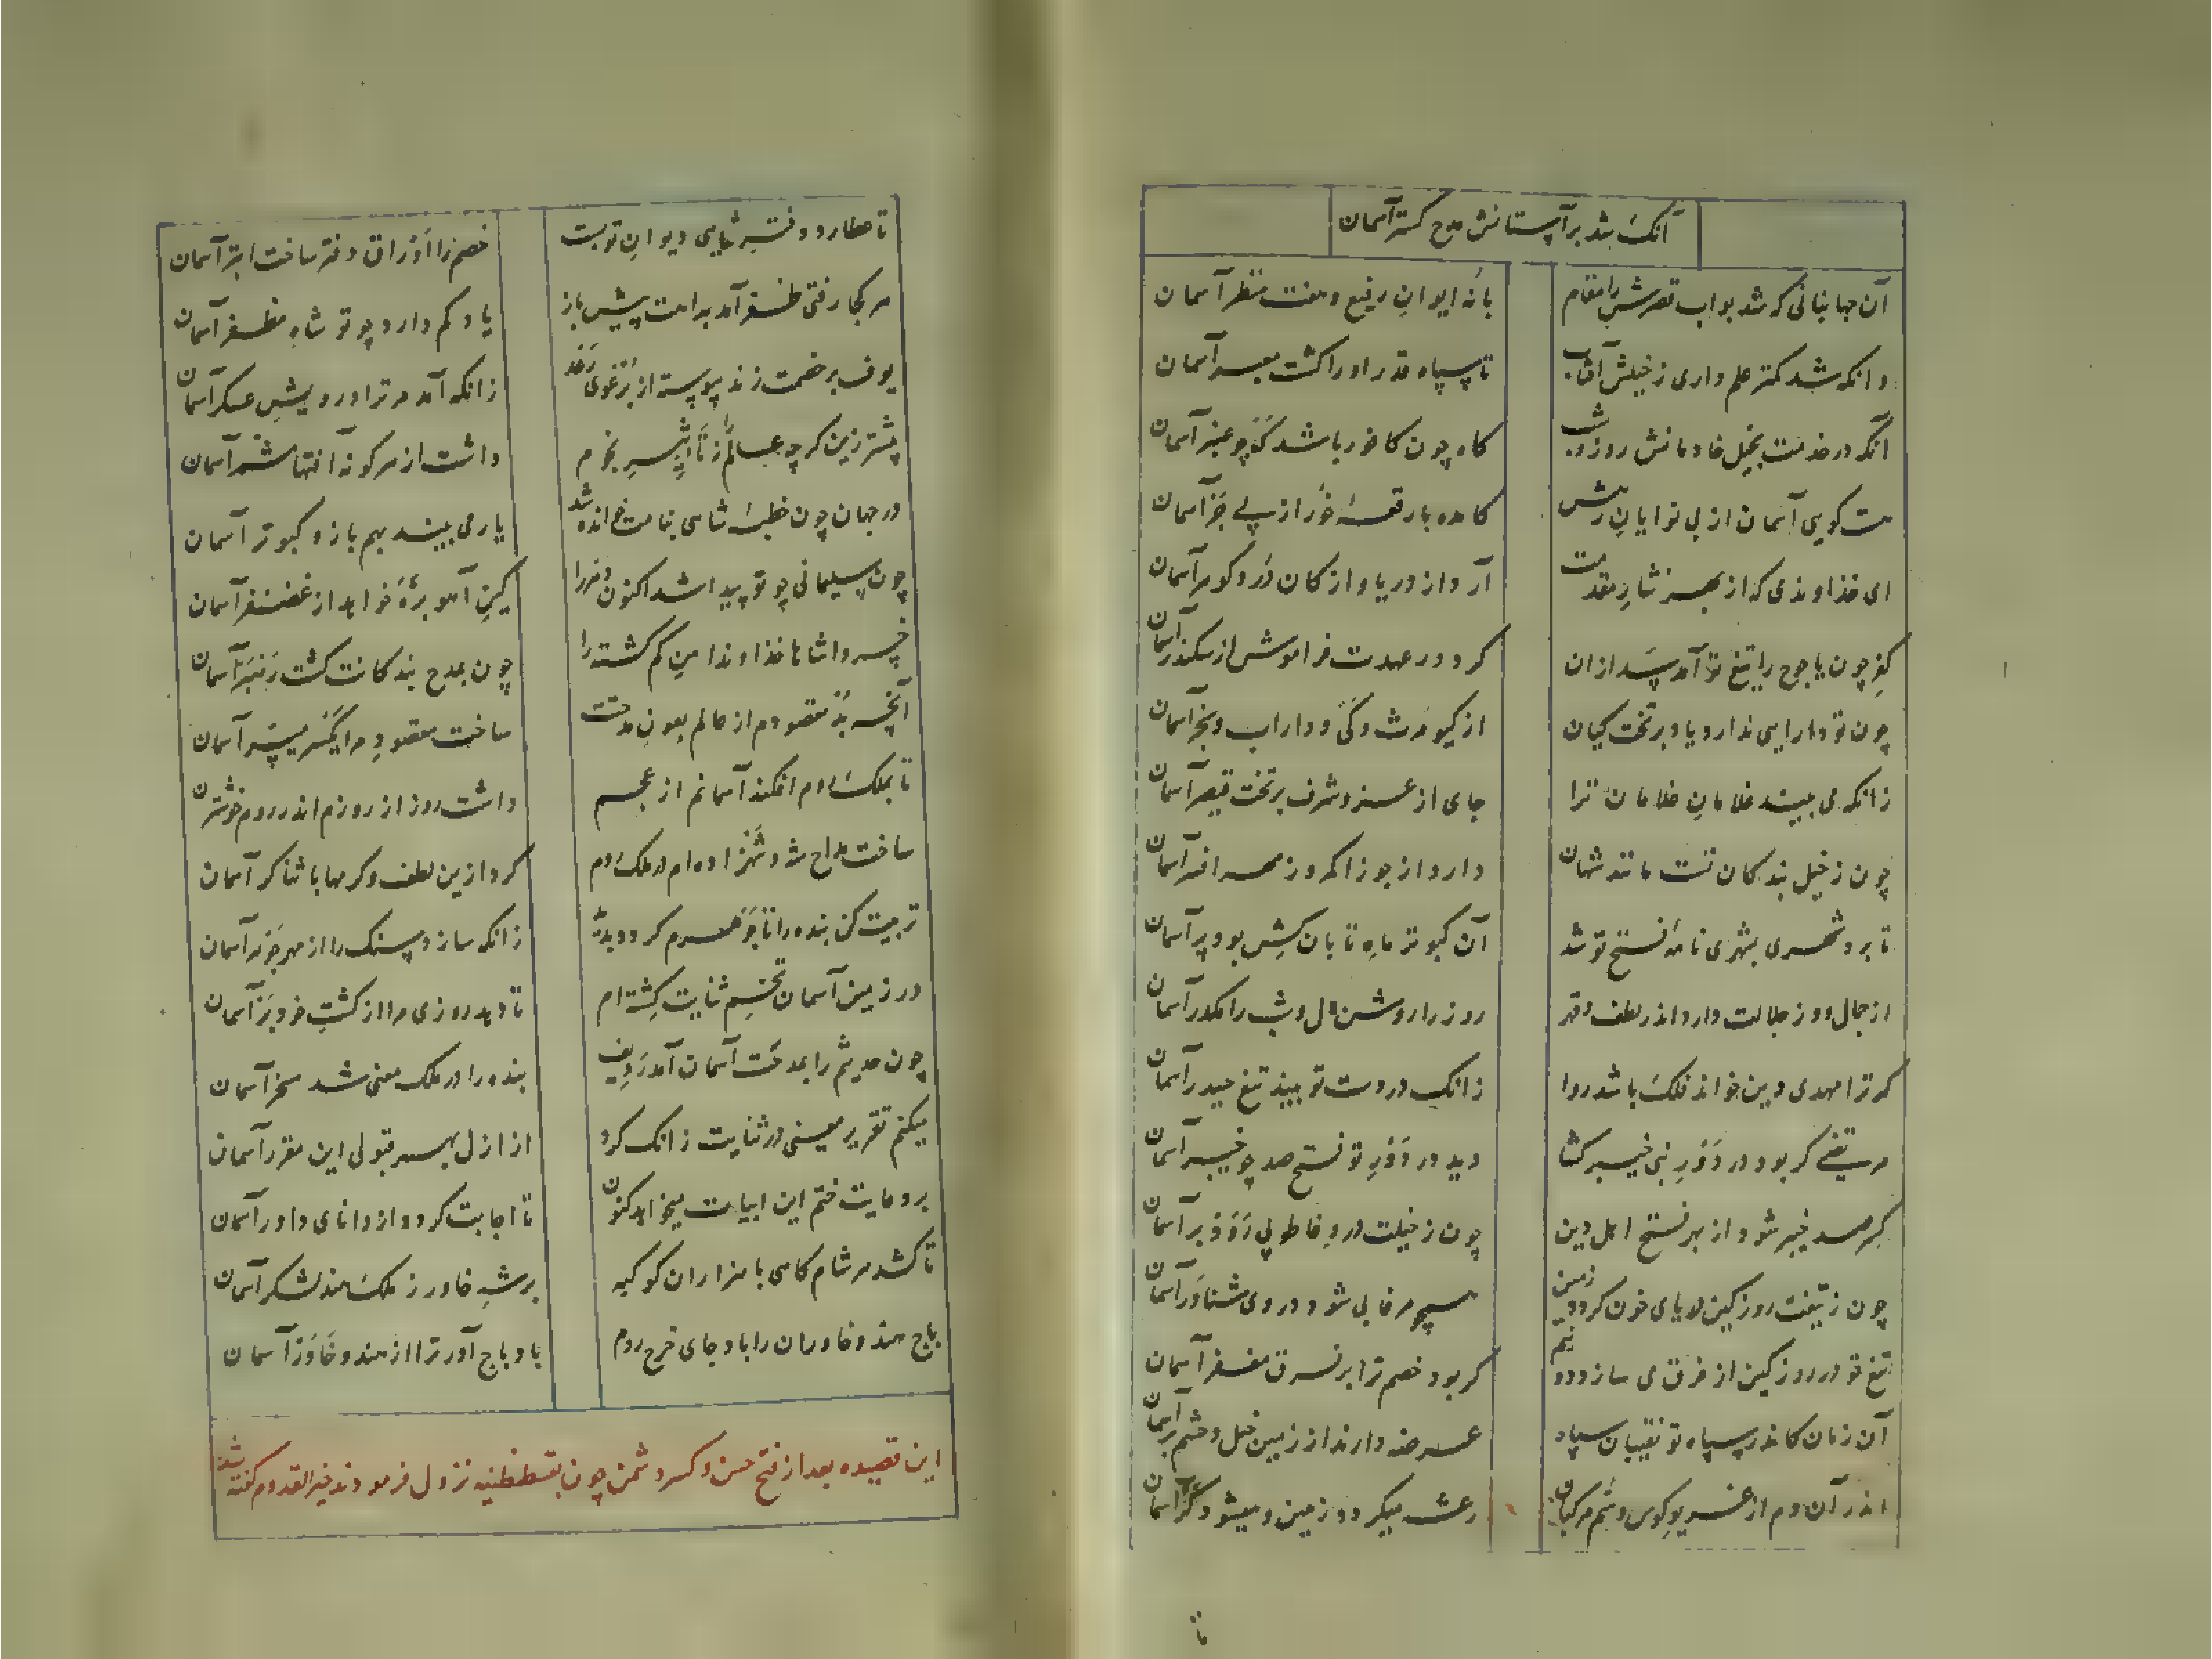 آنک شد بر آستانش مدح کستر آسمان
آن جهانبانی که شد بواب قصرش را مقام
با نه ایوان رفیع و هفت منظر آسمان
وانکه شد کمتر علم داری ز خیلش آفتاب
تا سپاه قدر او را کشت آسمان
آنکه در خدمت بخیل خادمانش روز و شب
کاه چون کافور باشد که چو عنبر آسمان
هست کویی آسمان از بی نوایان رهش
کامده با رقعه خور از پی جر آسمان
ای خداوندی که از بهر نثار مقدمت
آرد از دریا و از کان در و کوهر آسمان
کفر چون یاجوج را تیغ تو آمد سد از ان
کرد در عهدت فراموش از سکندر آسمان
چون تو دارایی ندارد یاد بر تخت کیان
از کیومرث و کی و داراب و آسمان
زانکه می بیند غلامان غلامان ترا
جای از عز و شرف بر تخت قیصر آسمان
چون ز خیل بندکان تست مانند شهان
دارد از جوزا کمر وز مهر افسر آسمان
تا برد شهری بشهری نامه فتح تو شد
آن کبوتر ماه تابان کش بود پر آسمان
از جمال و وز جلالت دارد اندر لطف و قهر
روز را روشن دل و شب را مکدر آسمان
کر ترا مهدی دین خواند فلک باشد روا
زانک در دست تو بیند تیغ حیدر آسمان
مرتضی کر بود در دور نبی خیبر کشا
دید در دور تو فتح صد چو خیبر آسمان
کر صد خیبر شود از بهر فتح اهل دین
چون ز خیلت در و فاطولی رود بر آسمان
چون ز تیغت روز کین دریای خون کردد زمین
همچو مرغابی شود در وی شناور آسمان
تیغ تو در روز کین از فرق می سازد دو نیم
کر بود خصم ترا بر فرق مغفر آسمان
آن زمان کاندر سپاه تو نقیبان سپاه
عرضه دارند از زمین خیل و حشم بر آسمان
اندر آن دم از غریو کوس و سم مرکبان
رعشه میکیرد زمین و میشود کر آسمان
تا
تا عطارد دفتر شاهی دیوان تو بست
خصم را اوراق دفتر ساخت ابتر آسمان
هر کجا رفتی ظفر آمد براهت پیش باز
یاد کم دارد چو تو شاه مظفر آسمان
برخصمت زند پیوسته از برغوی رعد
زانکه آمد مر ترا در پیش عسکر آسمان
پیشتر زین کر چه عالم را ز تأثیر نجوم
داشت از هر کونه آ
در جهان چون خطبه شاهی بنامت خوانده شد
یار می بیند بهم باز و کبوتر آسمان
چون سلیمانی چو تو پیدا شد اکنون
کین آهو بره خواهد از غضنفر آسمان
خسروا شاها خداوندا من کم کشته را
چون بمدح بندکانت کشت رهبر آسمان
آنچه بد مقصودم از عالم بعون مدحتت
ساخت مقصود مرا یکسر میسر آسمان
تا بملک روم افکند آسمانم از عجم
داشت روز از روزم اندر روم خوشتر آسمان
ساخت مداح شه و شهزاده ام در ملک روم
کرد ازین لطف و کرمها با ثناکر آسمان
تربیت کن بنده را تا جوهرم کردد پدید
زانکه سازد سنک را از مهر جوهر آسمان
در زمین آسمان تخم ثنایت کشته ام
تا دهد روزی مرا از کشت خود بر آسمان
چون مدیحم را بمدحت آسمان آمد ردیف
بنده را در ملک معنی شد مسخر آسمان
میکنم تقریر معنی در ثنایت زانک کرد
از ازل بهر قبولی این مقرر آسمان
بر دعایت ختم این ابیات میخواهد کنون
تا اجابت کردد از دانای داور آسمان
تا کشد هر شام کاهی با هزاران کوکبه
بر شه خاور ز ملک هند لشکر آسمان
باج هند و خاوران را باد جای خرج روم
باد باج آور ترا از هند و خاور آسمان
این قصیده بعد از فتح حسن و کسر دشمن چون بقسطنطنیه نزول فرمودند خیر القدوم کفته شد